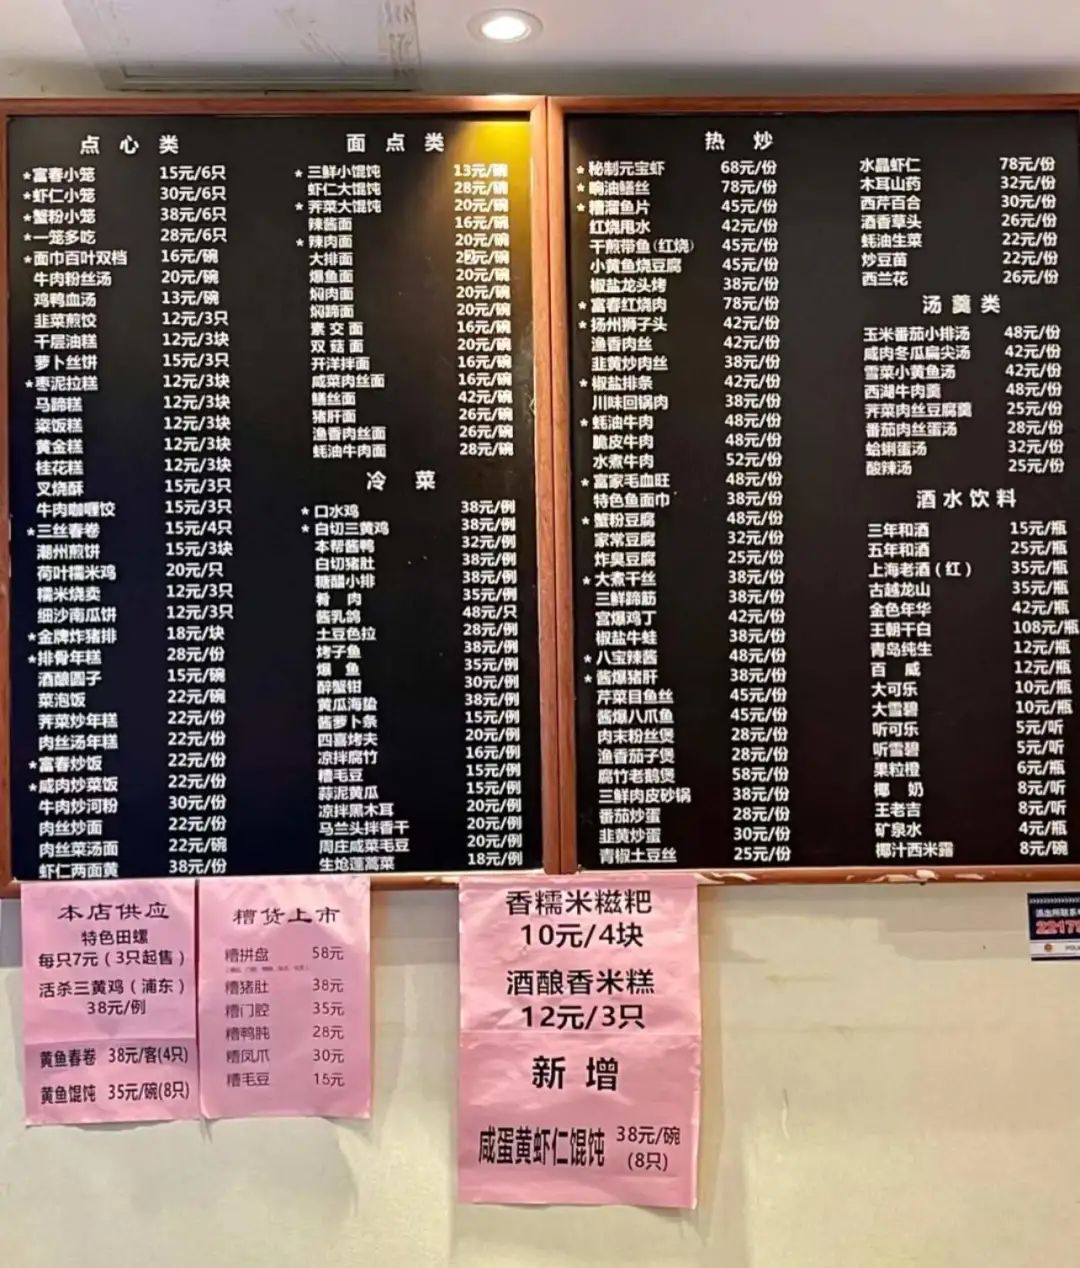 点心类
★富春小笼 15元/6只
★虾仁小笼 30元/6只
★蟹粉小笼 38元/6只
★一笼多吃 28元/6只
★面巾百叶双档 16元/碗
牛肉粉丝汤 20元/碗
鸡鸭血汤 13元/碗
韭菜煎饺 12元/3只
千层油糕 12元/3块
萝卜丝饼 15元/3只
★枣泥拉糕 12元/3块
马蹄糕 12元/3块
粢饭糕 12元/3块
黄金糕 12元/3块
桂花糕 12元/3块
叉烧酥 15元/3只
牛肉咖喱饺 15元/3只
★三丝春卷 15元/4只
潮州煎饼 15元/3块
荷叶糯米鸡 20元/只
糯米烧卖 12元/3只
细沙南瓜饼 12元/3只
★金牌炸猪排 18元/块
★排骨年糕 28元/份
酒酿圆子 15元/碗
菜泡饭 22元/碗
荠菜炒年糕 22元/份
肉丝汤年糕 22元/份
★富春炒饭 22元/份
★咸肉炒菜饭 22元/份
牛肉炒河粉 30元/份
肉丝炒面 22元/份
肉丝菜汤面 22元/碗
虾仁两面黄 38元/份
面点类
★三鲜小馄饨 13元/碗
虾仁大馄饨 28元/碗
★荠菜大馄饨 20元/碗
辣酱面 16元/碗
★辣肉面 20元/碗
大排面 22元/碗
爆鱼面 20元/碗
焖肉面 20元/碗
焖蹄面 20元/碗
素交面 16元/碗
双菇面 20元/碗
开洋拌面 16元/碗
咸菜肉丝面 16元/碗
鳝丝面 42元/碗
猪肝面 26元/碗
渔香肉丝面 26元/碗
蚝油牛肉面 28元/碗
冷菜
★口水鸡 38元/例
★白切三黄鸡 38元/例
本帮酱鸭 32元/例
白切猪肚 38元/例
糖醋小排 38元/例
肴肉 35元/例
酱乳鸽 48元/只
土豆色拉 28元/例
烤子鱼 38元/例
爆鱼 35元/例
醉蟹钳 30元/例
黄瓜海蛰 38元/例
酱萝卜条 15元/例
四喜烤夫 20元/例
凉拌腐竹 16元/例
糟毛豆 15元/例
蒜泥黄瓜 15元/例
凉拌黑木耳 20元/例
马兰头拌香干 20元/例
周庄咸菜毛豆 20元/例
生炝蓬蒿菜 18元/例
热炒
★秘制元宝虾 68元/份
★响油鳝丝 78元/份
★糟溜鱼片 45元/份
红烧甩水 42元/份
干煎带鱼(红烧) 45元/份
小黄鱼烧豆腐 45元/份
椒盐龙头烤 38元/份
★富春红烧肉 78元/份
★扬州狮子头 42元/份
渔香肉丝 42元/份
韭黄炒肉丝 38元/份
★椒盐排条 42元/份
川味回锅肉 38元/份
★蚝油牛肉 48元/份
脆皮牛肉 48元/份
水煮牛肉 52元/份
★富家毛血旺 48元/份
特色鱼面巾 38元/份
★蟹粉豆腐 48元/份
家常豆腐 32元/份
炸臭豆腐 25元/份
★大煮干丝 38元/份
三鲜蹄筋 38元/份
宫爆鸡丁 42元/份
椒盐牛蛙 38元/份
★八宝辣酱 48元/份
★酱爆猪肝 38元/份
芹菜目鱼丝 45元/份
酱爆八爪鱼 45元/份
肉末粉丝煲 28元/份
渔香茄子煲 28元/份
腐竹老鹅煲 58元/份
三鲜肉皮砂锅 38元/份
番茄炒蛋 28元/份
韭黄炒蛋 30元/份
青椒土豆丝 25元/份
水晶虾仁 78元/份
木耳山药 32元/份
西芹百合 30元/份
酒香草头 26元/份
蚝油生菜 22元/份
炒豆苗 22元/份
西兰花 26元/份
汤羹类
玉米番茄小排汤 48元/份
咸肉冬瓜扁尖汤 42元/份
雪菜小黄鱼汤 42元/份
西湖牛肉羹 48元/份
荠菜肉丝豆腐羹 25元/份
番茄肉丝蛋汤 28元/份
蛤蜊蛋汤 32元/份
酸辣汤 25元/份
酒水饮料
三年和酒 15元/瓶
五年和酒 25元/瓶
上海老酒(红) 35元/瓶
古越龙山 35元/瓶
金色年华 42元/瓶
王朝干白 108元/瓶
青岛纯生 12元/瓶
百威 12元/瓶
大可乐 10元/瓶
大雪碧 10元/瓶
听可乐 5元/听
听雪碧 5元/听
果粒橙 6元/瓶
椰奶 8元/听
王老吉 8元/听
矿泉水 4元/瓶
椰汁西米露 8元/碗
本店供应
特色田螺
每只7元(3只起售)
活杀三黄鸡(浦东)
38元/例
黄鱼春卷 38元/客(4只)
黄鱼馄饨 35元/碗(8只)
糟货上市
糟拼盘 58元
糟猪肚 38元
糟门腔 35元
糟鸭肫 28元
糟凤爪 30元
糟毛豆 15元
香糯米糍粑
10元/4块
酒酿香米糕
12元/3只
新增
咸蛋黄虾仁馄饨 38元/碗
(8只)